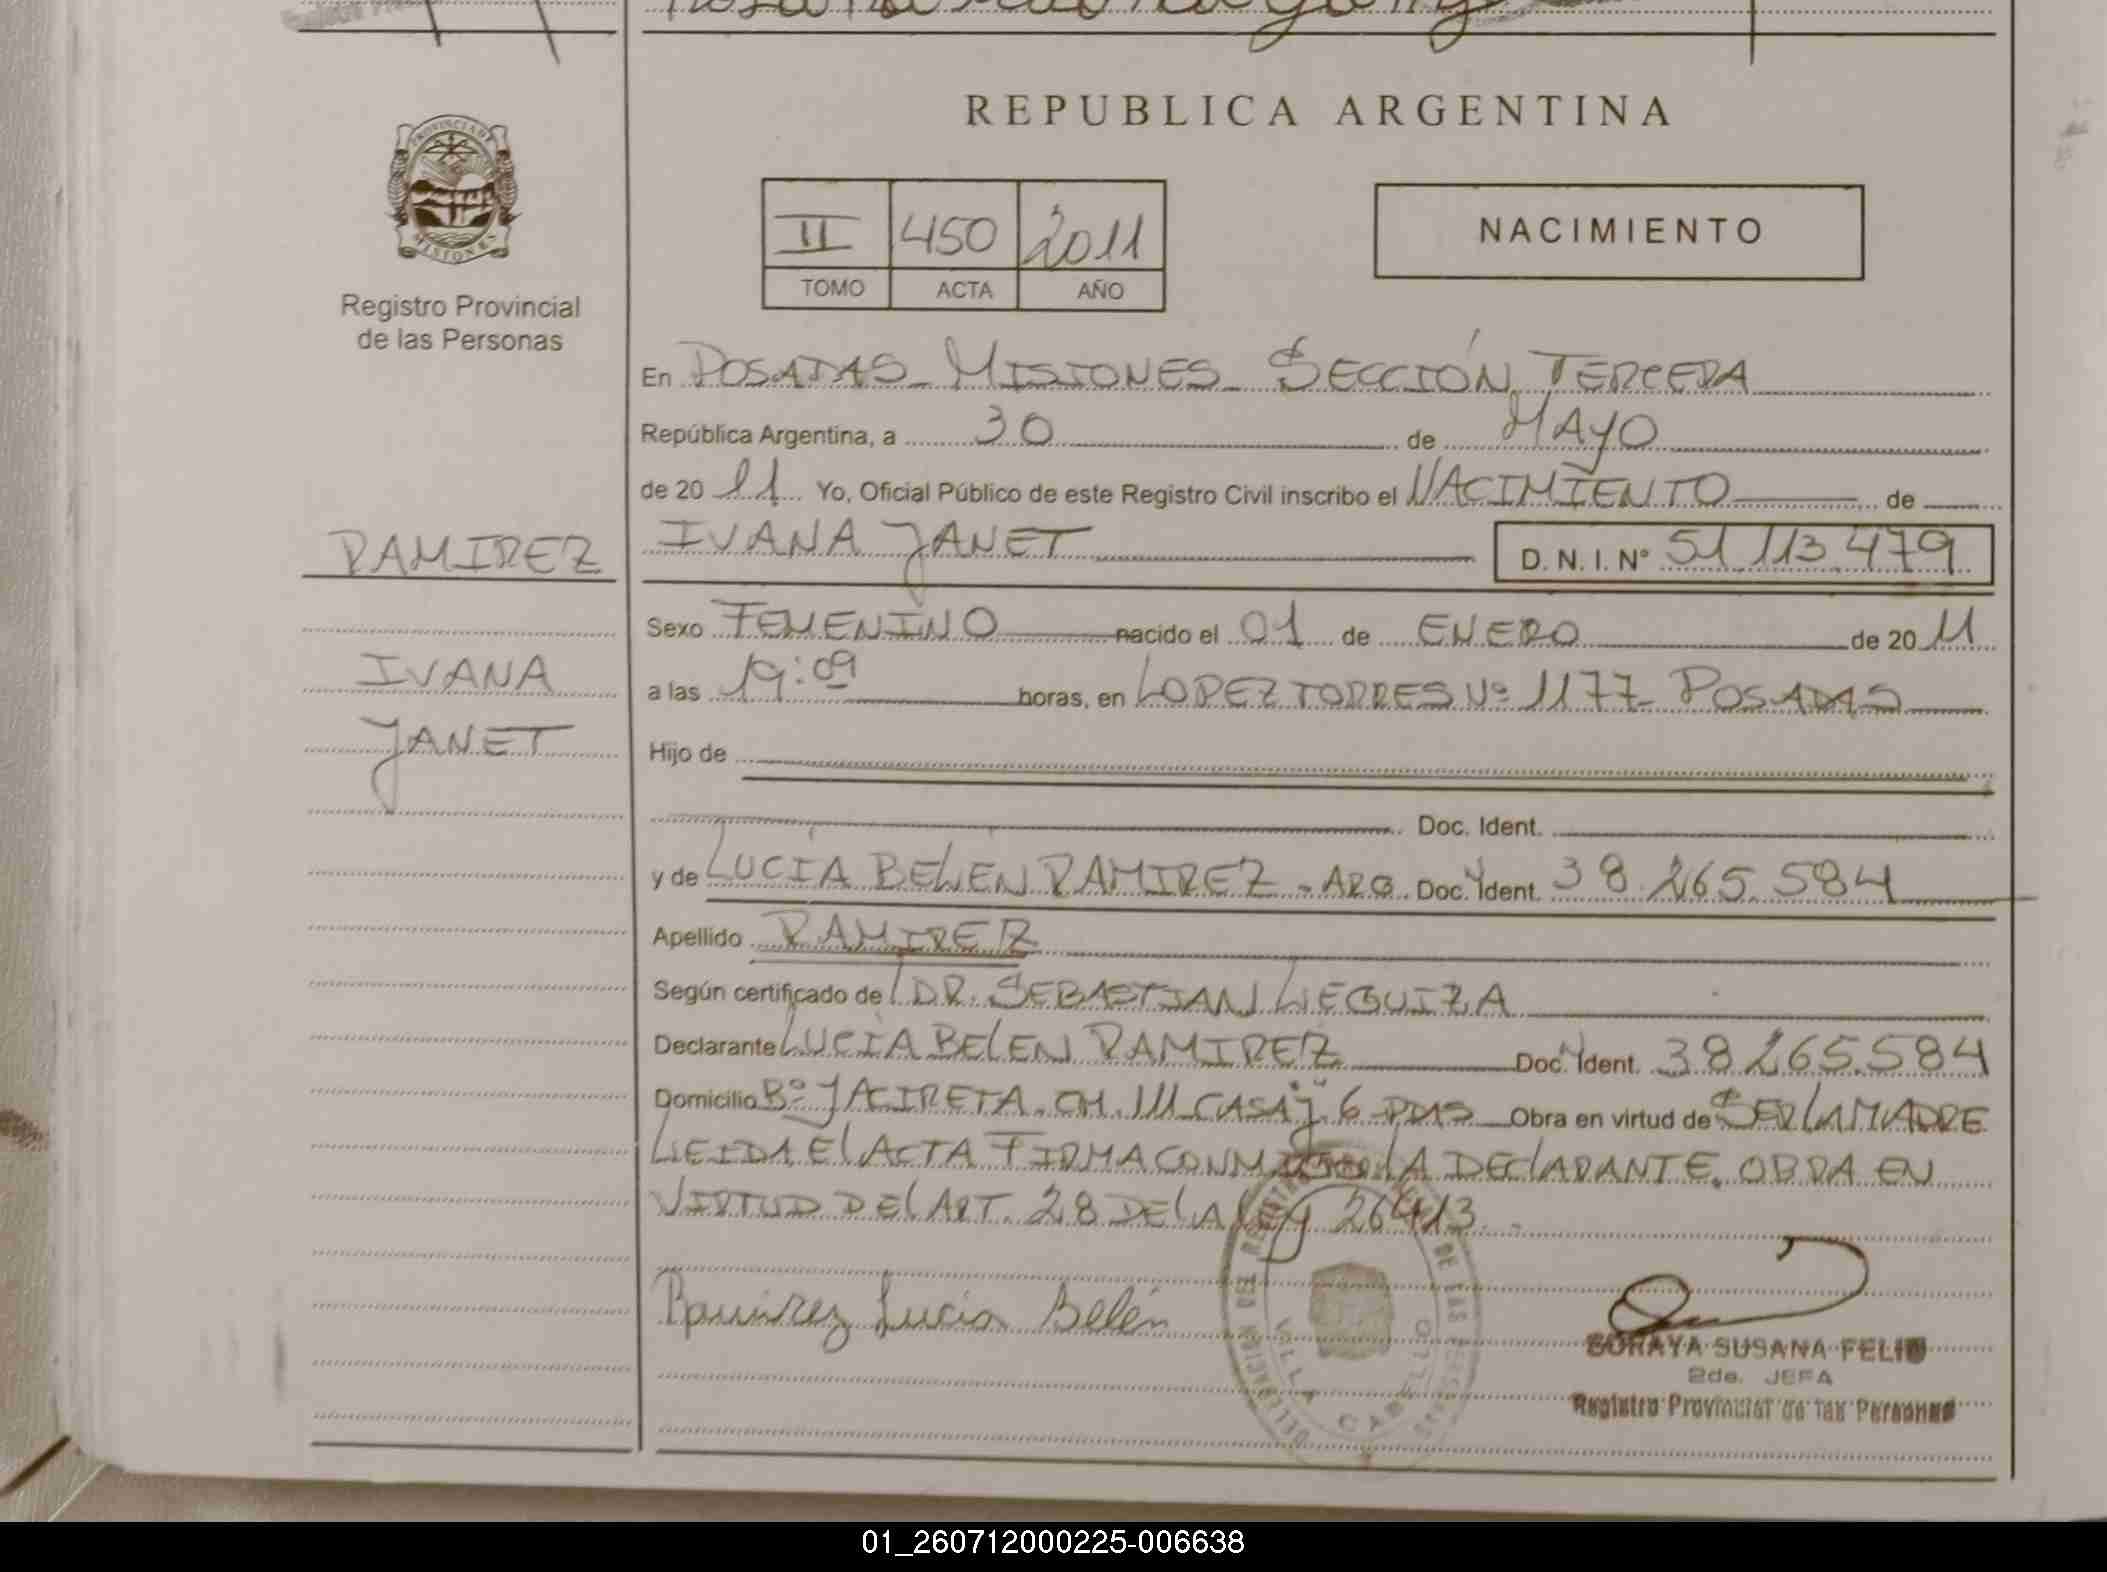 REPUBLICA ARGENTINA
PROVINCIA DE
MISIONES
Registro Provincial
de las Personas
II 450 2011
TOMO ACTA AÑO
NACIMIENTO
En POSADAS - MISIONES - SECCIÓN TERCERA
República Argentina, a 30 de MAYO
de 20 11 Yo, Oficial Público de este Registro Civil inscribo el NACIMIENTO de
RAMIREZ
IVANA JANET D. N. I. Nº 51 113 479
Sexo FEMENINO nacido el 01 de ENERO de 20 11
IVANA
a las 19:09 horas, en LOPEZ TORRES Nº 1177 - POSADAS
JANET
Hijo de
Doc. Ident.
y de LUCÍA BELEN RAMIREZ - ARG. Doc. Ident. 38.265.584
Apellido RAMIREZ
Según certificado de DR. SEBASTIAN LEGUIZA
Declarante LUCÍA BELEN RAMIREZ Doc. Ident. 38 265.584
Domicilio Bº JACIRETA. CH. 111 CASA "j" 6 - PDAS Obra en virtud de SER LA MADRE
LEIDA El ACTA FIRMA CONMIGO LA DEClARANTE. OBRA EN
VIRTUD DEl ART. 28 DE lA LEy 26413.
Ramirez Lucia Belén
DELEGACION DEL REGISTRO DE LAS PERSONAS
VILLA CABELLO
SORAYA SUSANA FELIU
2da. JEFA
Registro Provincial de las Personas
01_260712000225-006638